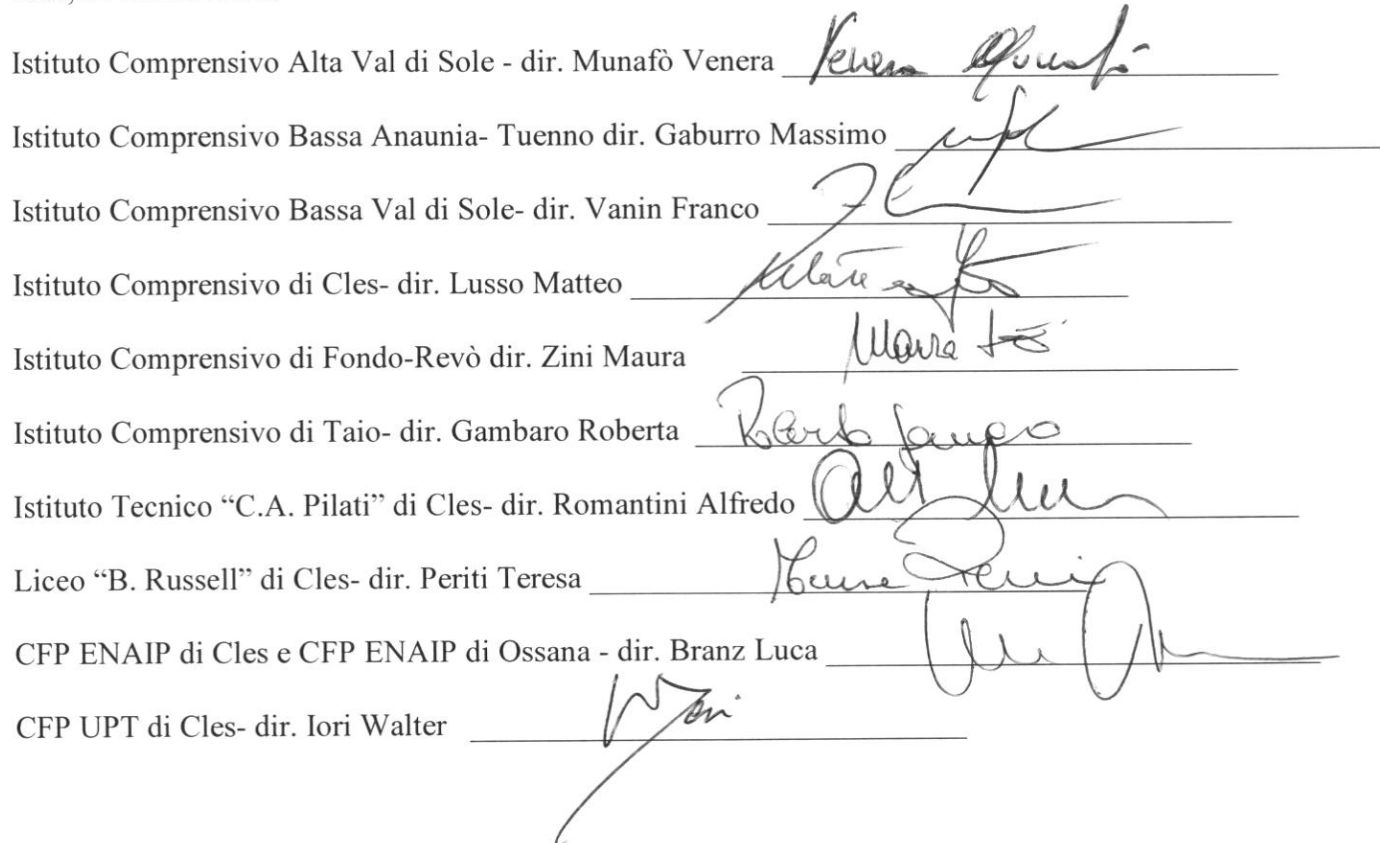 Istituto Comprensivo Alta Val di Sole - dir. Munafò Venera Venera Munafò
Istituto Comprensivo Bassa Anaunia- Tuenno dir. Gaburro Massimo
Istituto Comprensivo Bassa Val di Sole- dir. Vanin Franco
Istituto Comprensivo di Cles- dir. Lusso Matteo
Istituto Comprensivo di Fondo-Revò dir. Zini Maura Maura
Istituto Comprensivo di Taio- dir. Gambaro Roberta Roberta
Istituto Tecnico “C.A. Pilati” di Cles- dir. Romantini Alfredo
Liceo “B. Russell” di Cles- dir. Periti Teresa
CFP ENAIP di Cles e CFP ENAIP di Ossana - dir. Branz Luca
CFP UPT di Cles- dir. Iori Walter